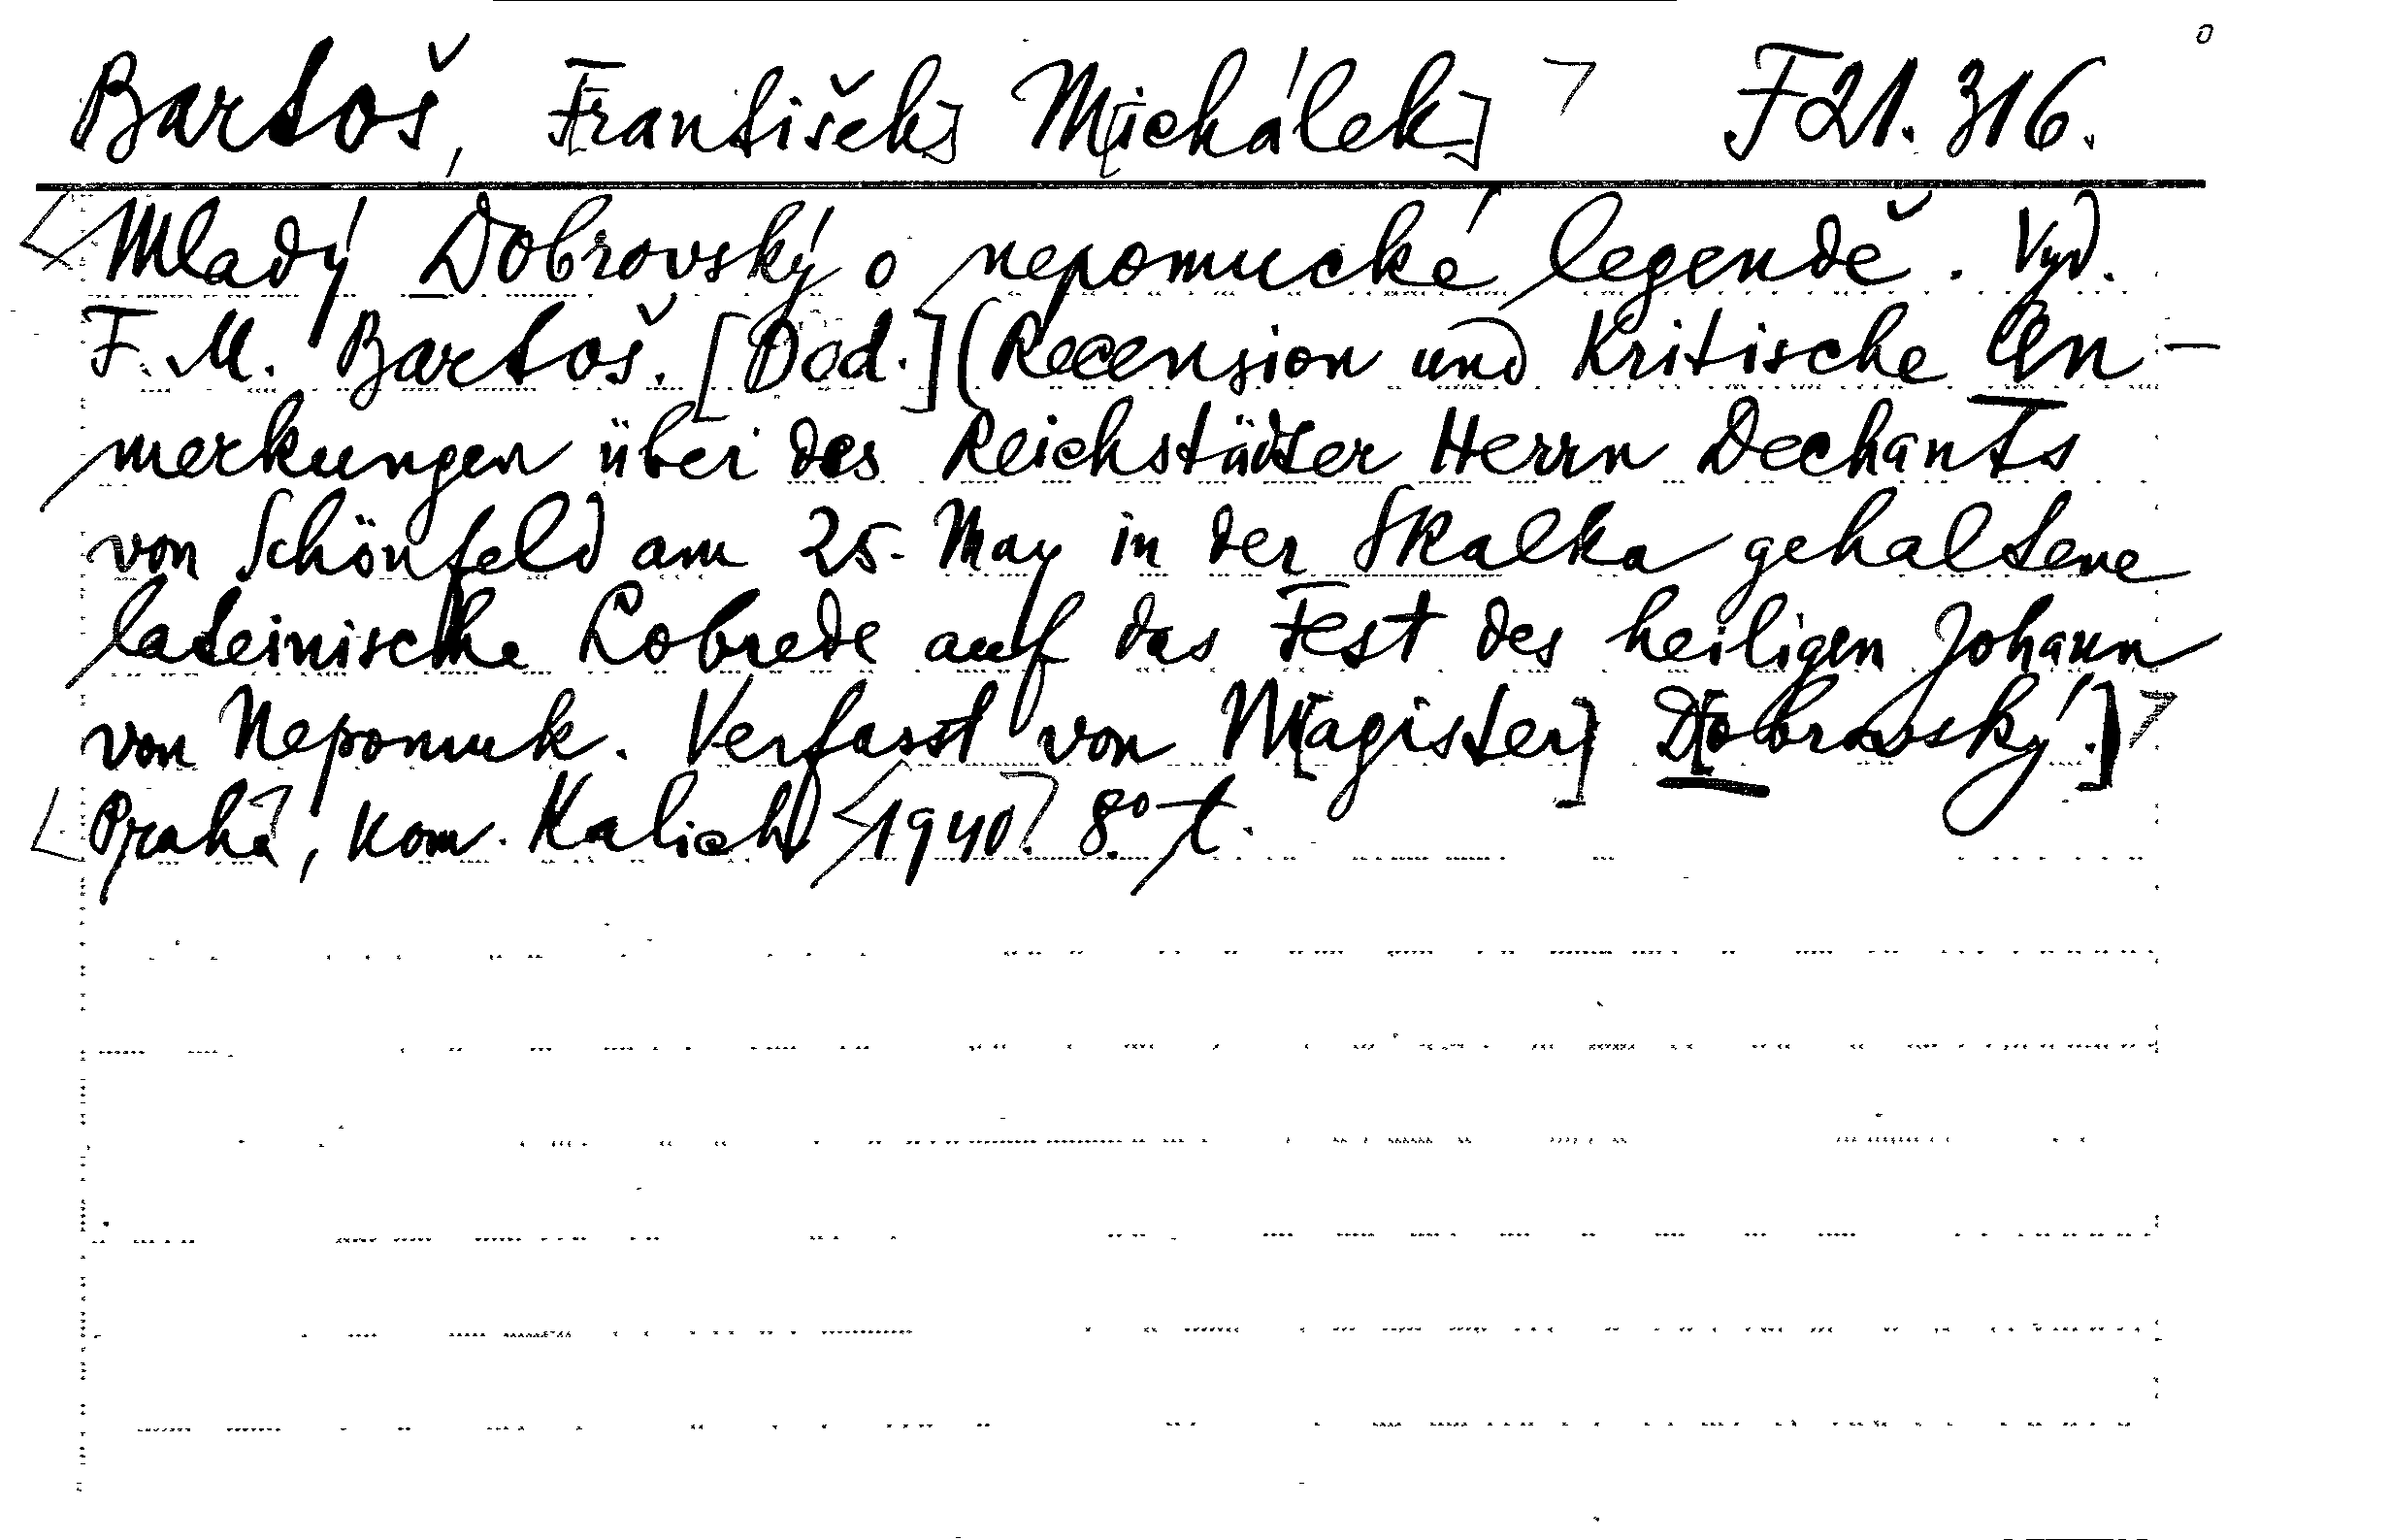 Bartoš, F[rantišek] M[ichálek] F 21.316.
Mladý Dobrovský o nepomucké legendě. Vyd.
F. M. Bartoš. [Dod.] (Recension und Kritische An-
merkungen über des Reichstädter Herrn Dechants
von Schönfeld am 25. May in der Skalka gehaltene
lateinische Lobrede auf das Fest des heiligen Johann
von Nepomuk. Verfasst von M[agister] D[obrovský.]
Praha, Kom. Kalich 1940. 8° t.